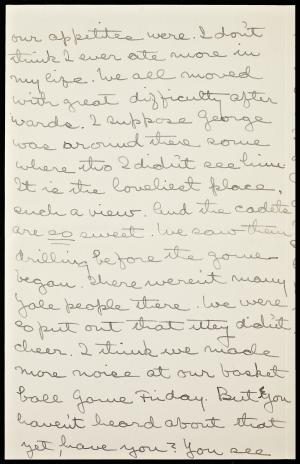 our appetites were. I don't
think I ever ate more in
my life. We all moved
with great difficulty after
wards. I suppose George
was around there some
where tho I didn't see him
It is the loveliest place,
such a view. And the cadets
are so sweet. We saw them
drilling before the game
began. There weren't many
Yale people there. We were
so put out that they didn't
cheer. I think we made
more noise at our basket
ball game Friday. But you
haven't heard about that
yet, have you? You see